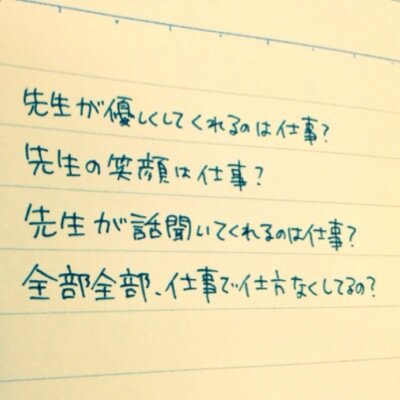 先生が優しくしてくれるのは仕事?
先生の笑顔は仕事?
先生が話聞いてくれるのは仕事?
全部全部、仕事で仕方なくしてるの?